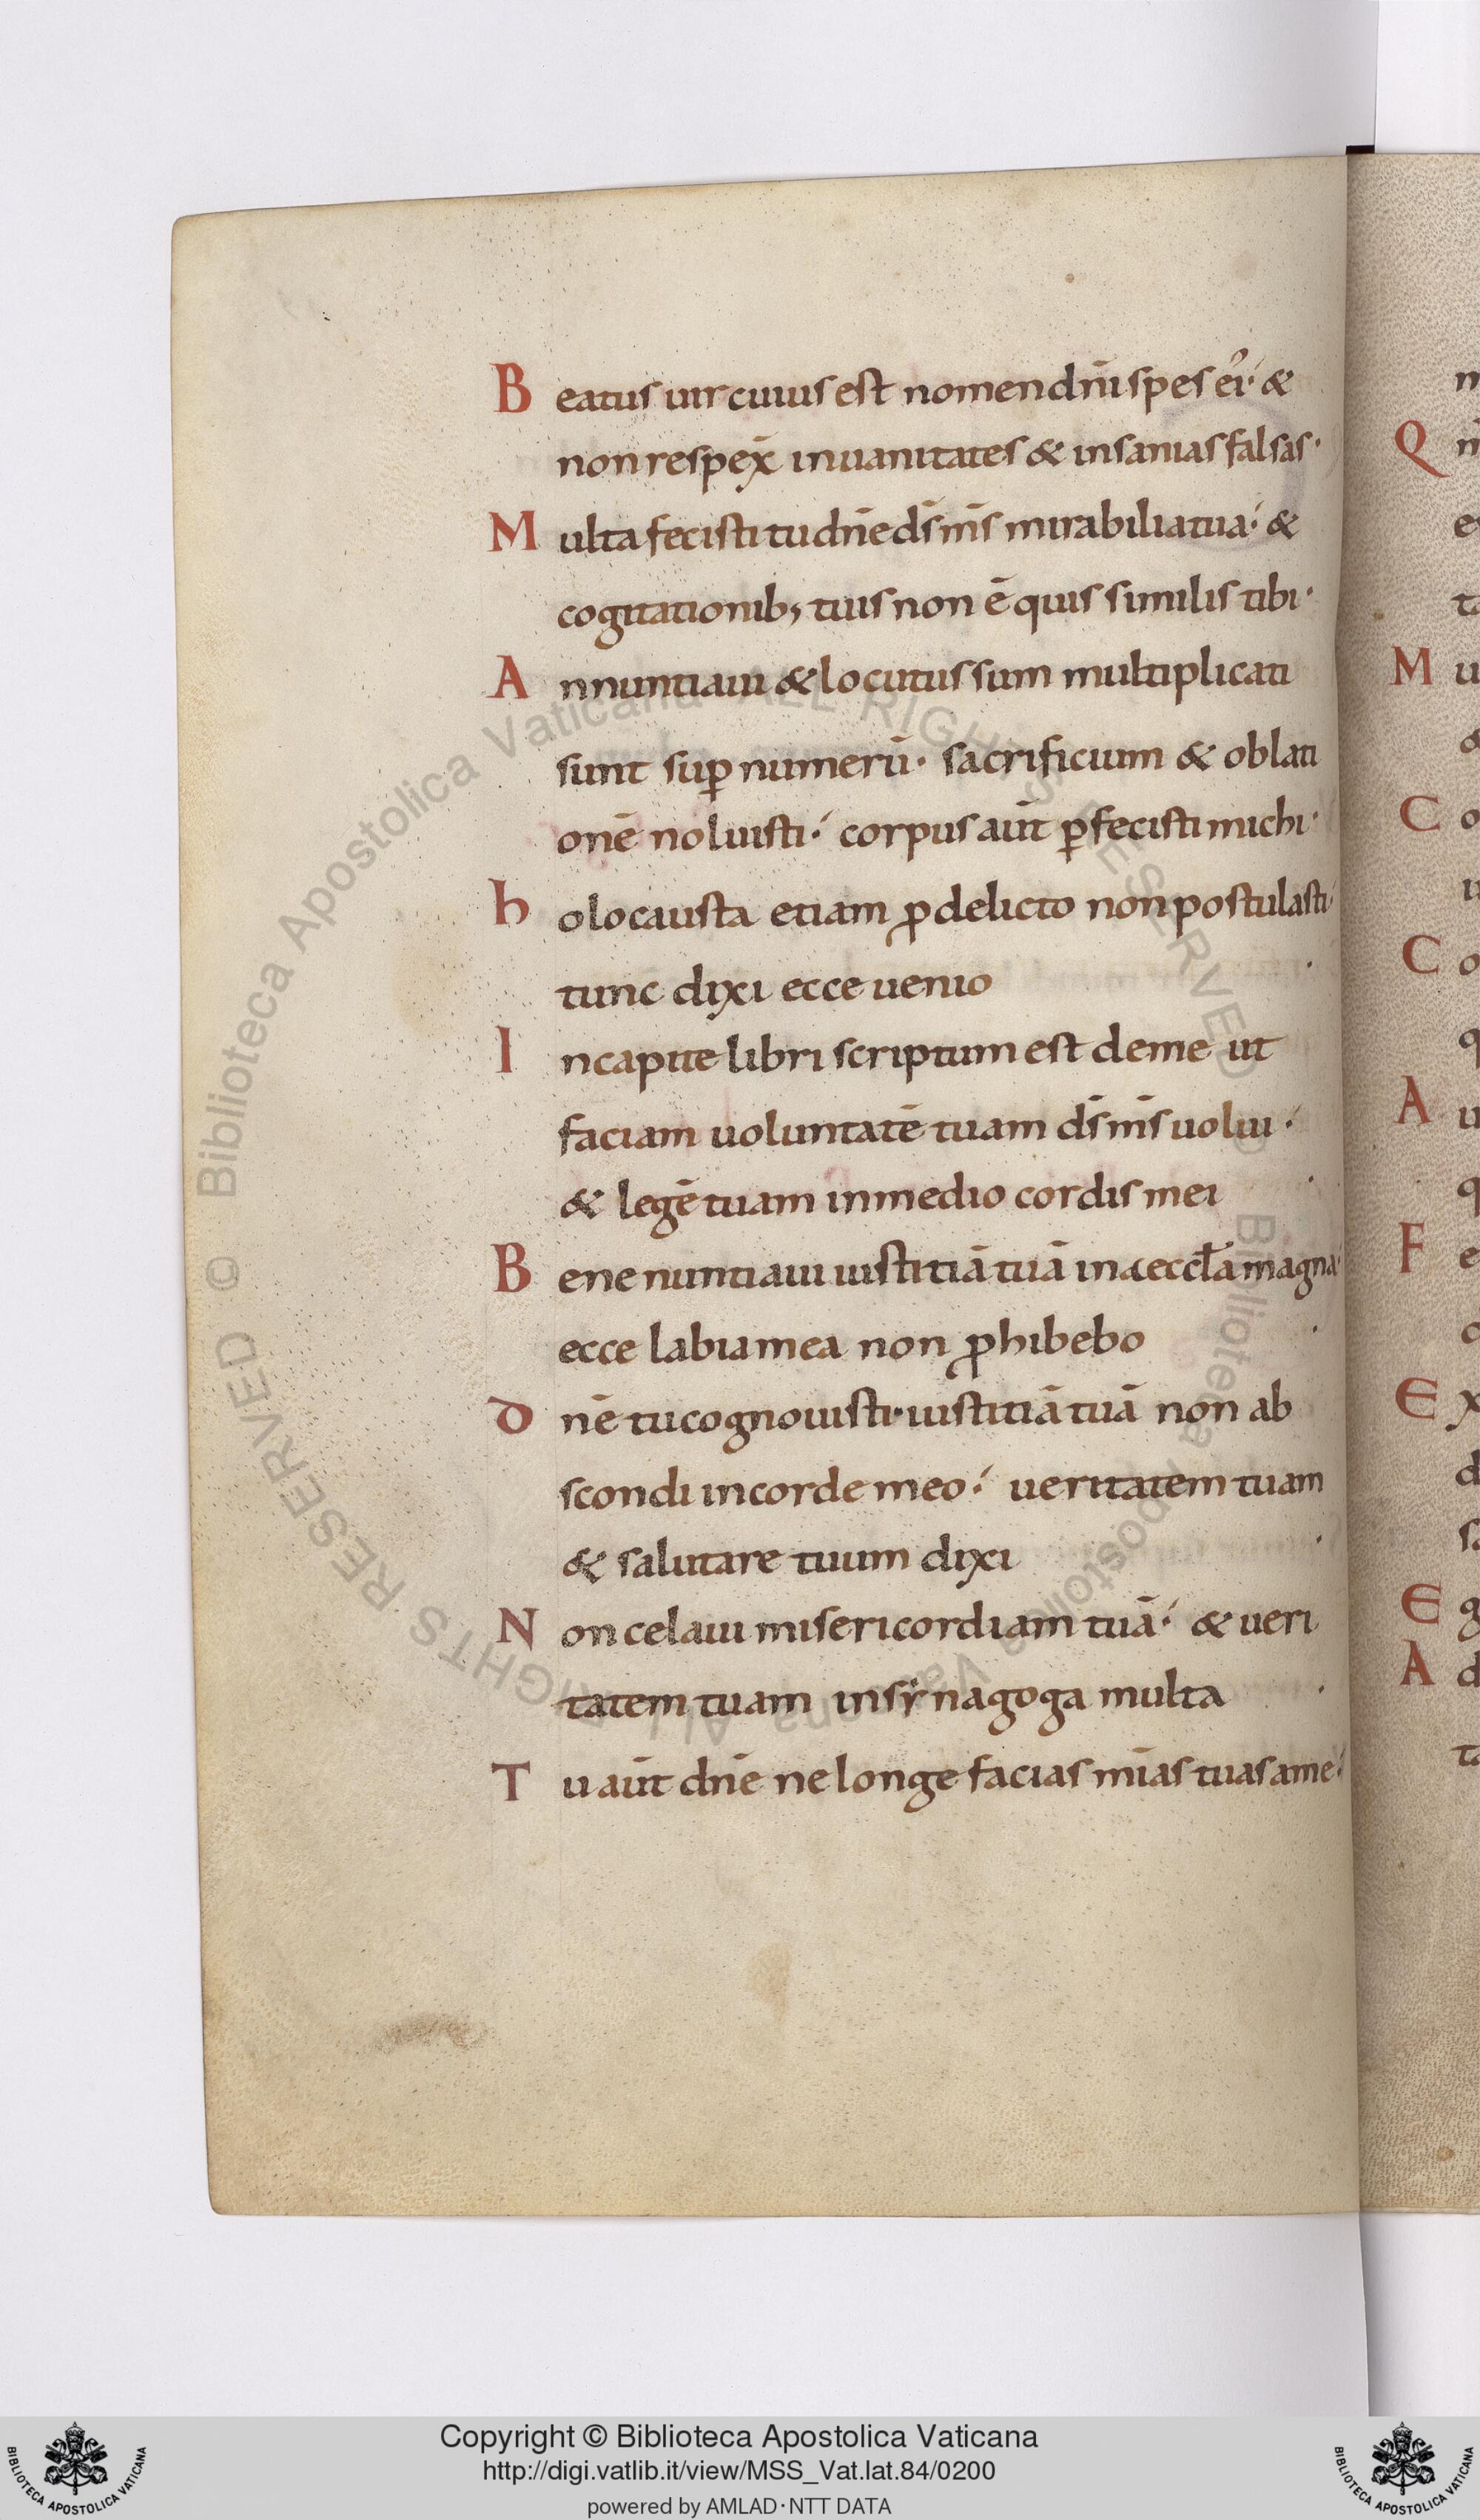 Beatus uir cuius est nomen dn̄i spes ei᾽ &
non respex̄ in uanitates & insanias falsas·
Multa fecisti tu dn̄e ds̄ ms̄ mirabilia tua· &
cogitationib; tuis non ē quis similis tibi·
Annuntiaui & locutus sum multiplicati
sunt suꝑ numerū· sacrificium & oblati
onē noluisti· corpus aūt ꝑfecisti michi·
holocausta etiam ꝓ delicto non postulasti
tunc dixi ecce uenio
In capite libri scriptum est de me ut
faciam uoluntatē tuam ds̄ ms̄ uolui·
& legē tuam in medio cordis mei
Bene nuntiaui iustitiā tuā in aeccl̄a magna
ecce labia mea non ꝓhibebo
dn̄e tu cognouisti· iustitiā tuā non ab
scondi in corde meo· ueritatem tuam
& salutare tuum dixi
Non celaui misericordiam tuā· & ueri
tatem tuam in synagoga multa
Tu aūt dn̄e ne longe facias mīas tuas a me·
Q
M
C
C
A
F
E
E
A
© Biblioteca Apostolica Vaticana ALL RIGHTS RESERVED
© Biblioteca Apostolica Vaticana ALL RIGHTS RESERVED
Copyright © Biblioteca Apostolica Vaticana
http://digi.vatlib.it/view/MSS_Vat.lat.84/0200
powered by AMLAD·NTT DATA
BIBLIOTECA APOSTOLICA VATICANA
BIBLIOTECA APOSTOLICA VATICANA